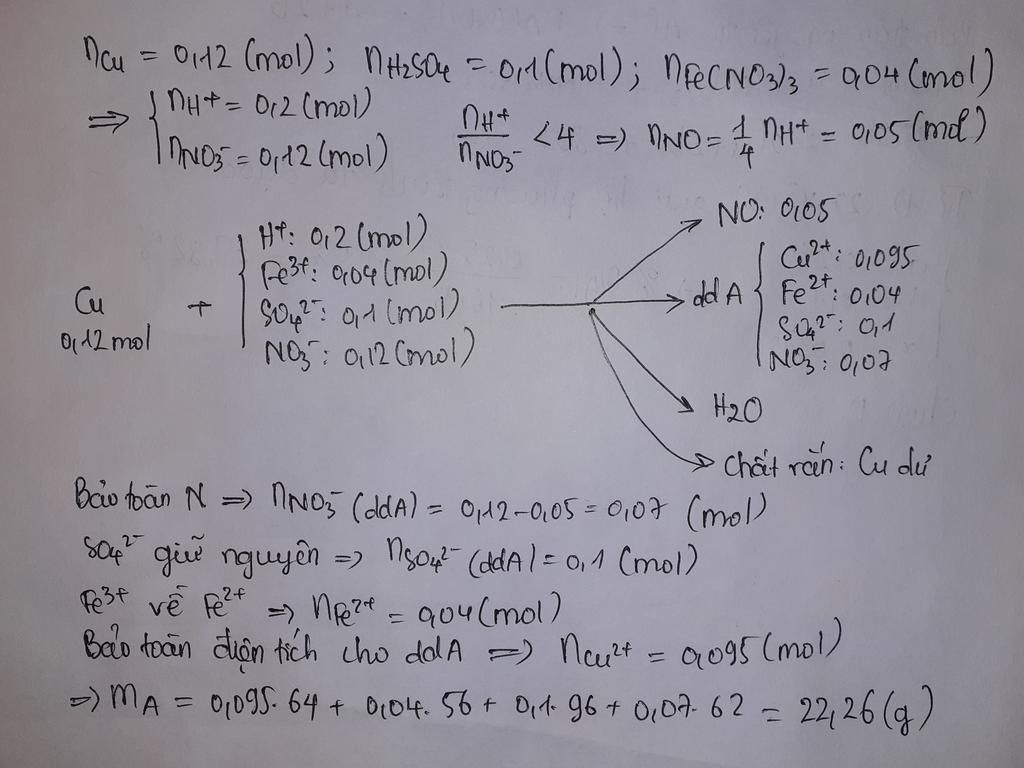 nCu = 0,12 (mol); nH2SO4 = 0,1 (mol); nFe(NO3)3 = 0,04 (mol)
=> { nH+ = 0,2 (mol)
nNO3- = 0,12 (mol)
nH+/nNO3- < 4 => nNO = 1/4 nH+ = 0,05 (mol)
Cu
0,12 mol
+
H+: 0,2 (mol)
Fe3+: 0,04 (mol)
SO42-: 0,1 (mol)
NO3-: 0,12 (mol)
NO: 0,05
ddA { Cu2+: 0,095
Fe2+: 0,04
SO42-: 0,1
NO3-: 0,07
H2O
Chất rắn: Cu dư
Bảo toàn N => nNO3- (ddA) = 0,12-0,05 = 0,07 (mol)
SO42- giữ nguyên => nSO42- (ddA) = 0,1 (mol)
Fe3+ về Fe2+ => nFe2+ = 0,04 (mol)
Bảo toàn điện tích cho ddA => nCu2+ = 0,095 (mol)
=> mA = 0,095.64 + 0,04.56 + 0,1.96 + 0,07.62 = 22,26 (g)